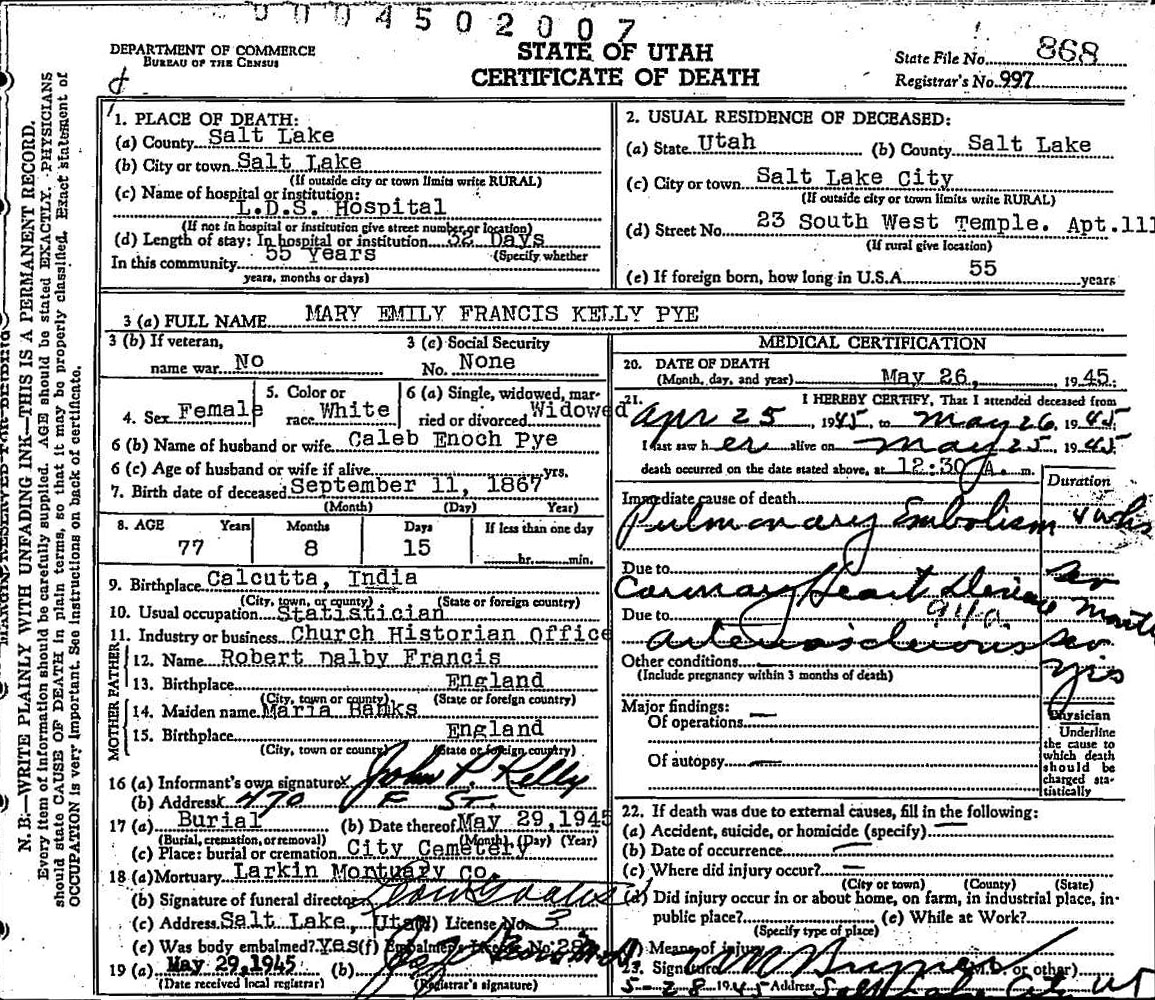 0004502007
DEPARTMENT OF COMMERCE
BUREAU OF THE CENSUS
STATE OF UTAH
CERTIFICATE OF DEATH
State File No. 868
Registrar's No. 997
1. PLACE OF DEATH:
(a) County Salt Lake
(b) City or town Salt Lake
(If outside city or town limits write RURAL)
(c) Name of hospital or institution:
L.D.S. Hospital
(If not in hospital or institution give street number or location)
(d) Length of stay: In hospital or institution 32 Days
(Specify whether
In this community 55 Years
years, months or days)
2. USUAL RESIDENCE OF DECEASED:
(a) State Utah (b) County Salt Lake
(c) City or town Salt Lake City
(If outside city or town limits write RURAL)
(d) Street No. 23 South West Temple. Apt.111
(If rural give location)
(e) If foreign born, how long in U.S.A. 55 years
3 (a) FULL NAME MARY EMILY FRANCIS KELLY PYE
3 (b) If veteran,
name war No
3 (c) Social Security
No. None
4. Sex Female
5. Color or
race White
6 (a) Single, widowed, mar-
ried or divorced Widowed
6 (b) Name of husband or wife Caleb Enoch Pye
6 (c) Age of husband or wife if alive yrs.
7. Birth date of deceased September 11, 1867
(Month) (Day) Year)
8. AGE Years Months Days If less than one day
77 8 15 hr. min.
9. Birthplace Calcutta, India
(City, town, or county) (State or foreign country)
10. Usual occupation Statistician
11. Industry or business Church Historian Office
FATHER
12. Name Robert Dalby Francis
13. Birthplace England
(City, town or county) (State or foreign country)
MOTHER
14. Maiden name Maria Banks
15. Birthplace England
(City, town or county) (State or foreign country)
16 (a) Informant's own signature x John P. Kelly
(b) Address 470 F St.
17 (a) Burial (b) Date thereof May 29,1945
(Burial, cremation, or removal) (Month) (Day) (Year)
(c) Place: burial or cremation City Cemetery
18 (a) Mortuary Larkin Mortuary Co.
(b) Signature of funeral director
(c) Address Salt Lake, Utah License No. 3
(e) Was body embalmed? Yes (f) Embalmer's License No.
19 (a) May 29,1945 (b)
(Date received local registrar) (Registrar's signature)
MEDICAL CERTIFICATION
20. DATE OF DEATH
(Month, day, and year) May 26, 1945
21. I HEREBY CERTIFY, That I attended deceased from
Apr 25, 1945, to May 26, 1945
I last saw her alive on May 25, 1945
death occurred on the date stated above, at 12:30 A. m.
Duration
Immediate cause of death
Pulmonary Embolism 4 whs
Due to
Coronary Heart Disease sev months
Due to 94a
arteriosclerosis sev yrs
Other conditions —
(Include pregnancy within 3 months of death)
Major findings:
Of operations —
Of autopsy —
Physician
Underline
the cause to
which death
should be
charged sta-
tistically
22. If death was due to external causes, fill in the following:
(a) Accident, suicide, or homicide (specify) —
(b) Date of occurrence —
(c) Where did injury occur? —
(City or town) (County) (State)
(d) Did injury occur in or about home, on farm, in industrial place, in-
public place? (e) While at Work?
(Specify type of place)
(f) Means of injury
23. Signature (M.D. or other)
5-28-1945 Address Salt Lake City UT
MARGIN RESERVED FOR BINDING
N. B.—WRITE PLAINLY WITH UNFADING INK—THIS IS A PERMANENT RECORD.
Every item of information should be carefully supplied. AGE should be stated EXACTLY. PHYSICIANS
should state CAUSE OF DEATH in plain terms, so that it may be properly classified. Exact statement of
OCCUPATION is very important. See instructions on back of certificate.